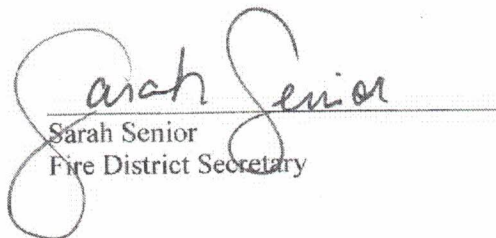 Sarah Senior
Sarah Senior
Fire District Secretary